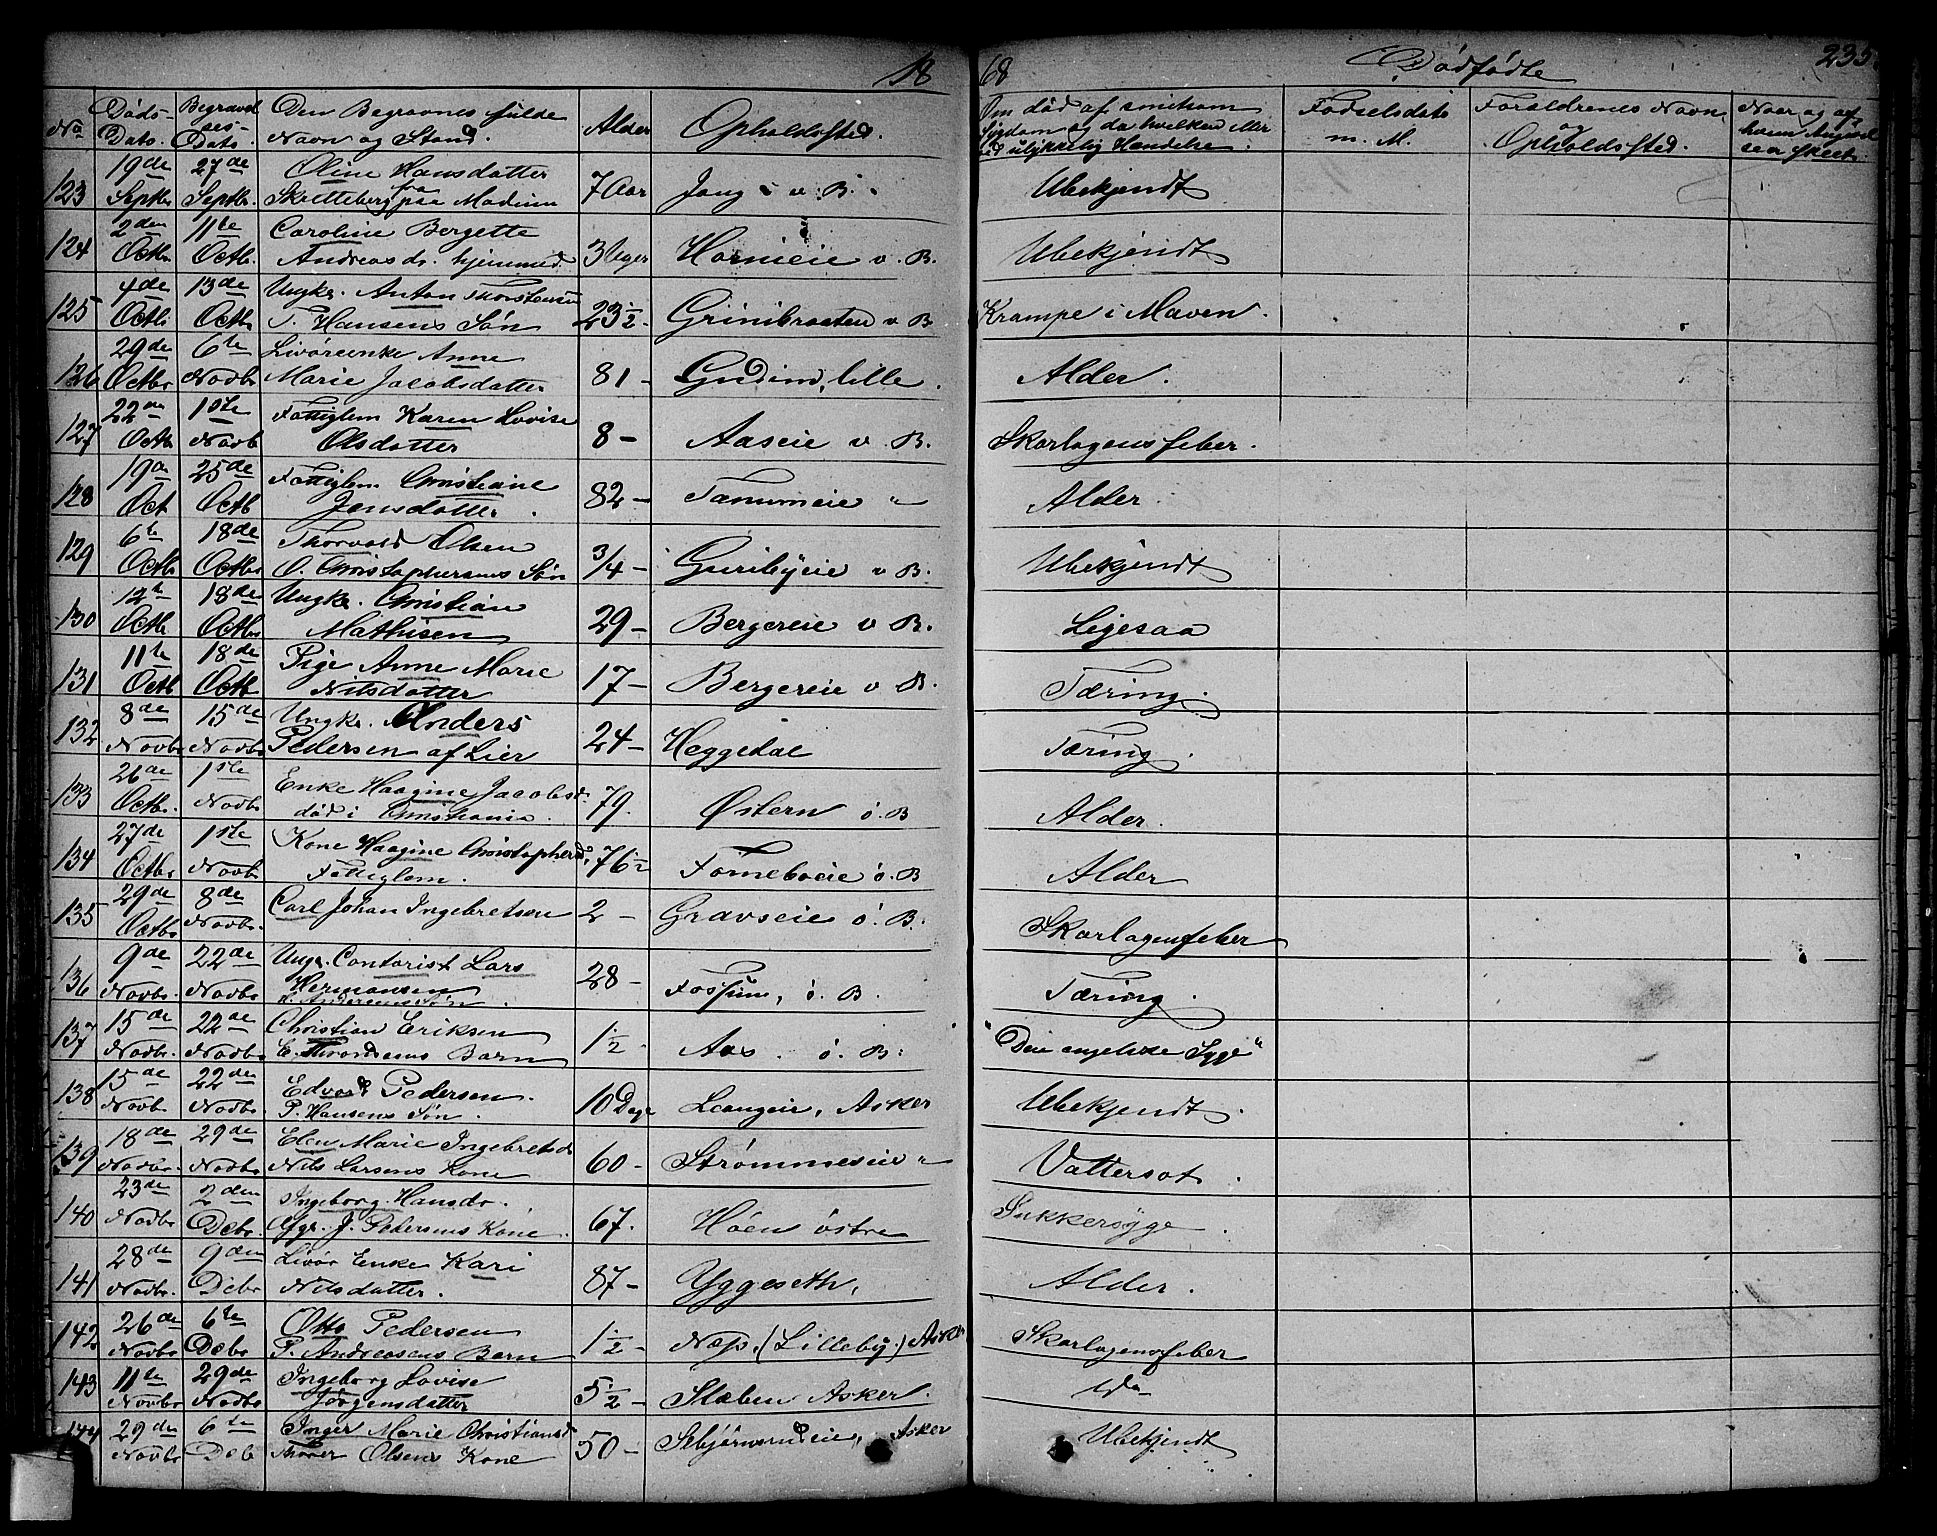 18 68 Dødfødte 235
No Døds-Dato. Begravelses-Dato. Den Begravnes fulde Navn og Stand. Alder Opholdssted. Om død af smitsom Sygdom og da hvilken eller ved ulykkelig Hændelse. Fødselsdato m. M. Forældrenes Navn og Opholdssted. Naar og af hvem
123 19de Septbr 27de Septbr. Oline Hansdatter
Skotteberg fra paa Modum 7 Aar Jong i v. B. Ubekjendt
124 2den Octbr. 11te Octb. Caroline Bergette
Andreasdr. hjemmed. 3 Uger Hornieie v. B. Ubekjendt
125 4de Octb 13de Octbr Ungkr. Anton Thorstensen
T. Hansens Søn 23½ - Grinibraaten v B Krampe i Maven.
126 29de Octbr 6te Novbr Livøreenke Anne
Marie Jacobsdatter 81 - Gudim, lille. Alder.
127 22de Octb 1ste Novb Fattiglem Karen Lovise
Olsdatter 8 - Aaseie v. B. Skarlagensfeber.
128 19de Oct 25de Octb Fattiglem Christiane
Jensdatter. 82 - Tanumeie " Alder.
129 6te Octb 18de Octbr Thorvald Olsen
O. Christophersens Søn 3/4 - Guribyeie v B. Ubekjendt
130 12te Octb 18de Octbr Ungkr. Christian
Mathisen 29 - Bergereie v B. Ligesaa
131 11te Octb 18de Octb Pige Anne Marie
Nilsdatter 17 - Bergereie v B. Tæring.
132 8de Novbr 15de Novbr Ungkr. Anders
Pedersen af Lier 24 - Heggedal Tæring.
133 26de Octbr. 1ste Novbr Enke Haagine Jacobsd.
død i Christiania. 79. Østern ø. B Alder.
134 27de Octbr 1ste Novbr Kone Haagine Christophersd.
Fattiglem. 76½ Forneboeie ø. B Alder
135 29de Octbr 8de Novbr. Carl Johan Ingebretsen 2 - Gravseie ø. B. Skarlagensfeber
136 9de Novbr. 22de Novbr Ungk. Contorist Lars
Hermansen
H. Andersens Søn. 28 - Fossum, ø. B. Tæring.
137 15de Novbr. 22de Novbr Christian Eriksen
E. Throndsens Barn 1½ - Aas. ø. B. "Den engelske Syge"
138 15de Novb. 22de Novbr Edvard Pedersen.
P. Hansens Søn. 10 Dage Leangeie, Asker Ubekjendt.
139 18de Novbr. 29de Novbr Elen Marie Ingebretsd
Nils Larsens Kone 60 - Strømmeseie " Vattersot.
140 23de Novbr 2den Debr. Ingeborg Hansdr.
Ggr. J. Pedersens Kone. 67. Høen østre Sukkersyge.
141 28de Novbr. 9den Debr Livør Enke Kari
Nilsdatter. 87 - Yggeseth, Alder.
142 26de Novbr 6te Debr Otto Pedersen
P. Andreasens Barn 1½ - Næs, (Lilleby) Asker Skarlagensfeber
143 11te Novbr 29de Novbr Ingeborg Lovise
Jørgensdatter 5½ - Slæben Asker.
144 29de Novbr 6te Deb Inger Marie Christiansd
Thover Olsens Kone 50 - Sebjørnrudeie, Asker Ubekjendt